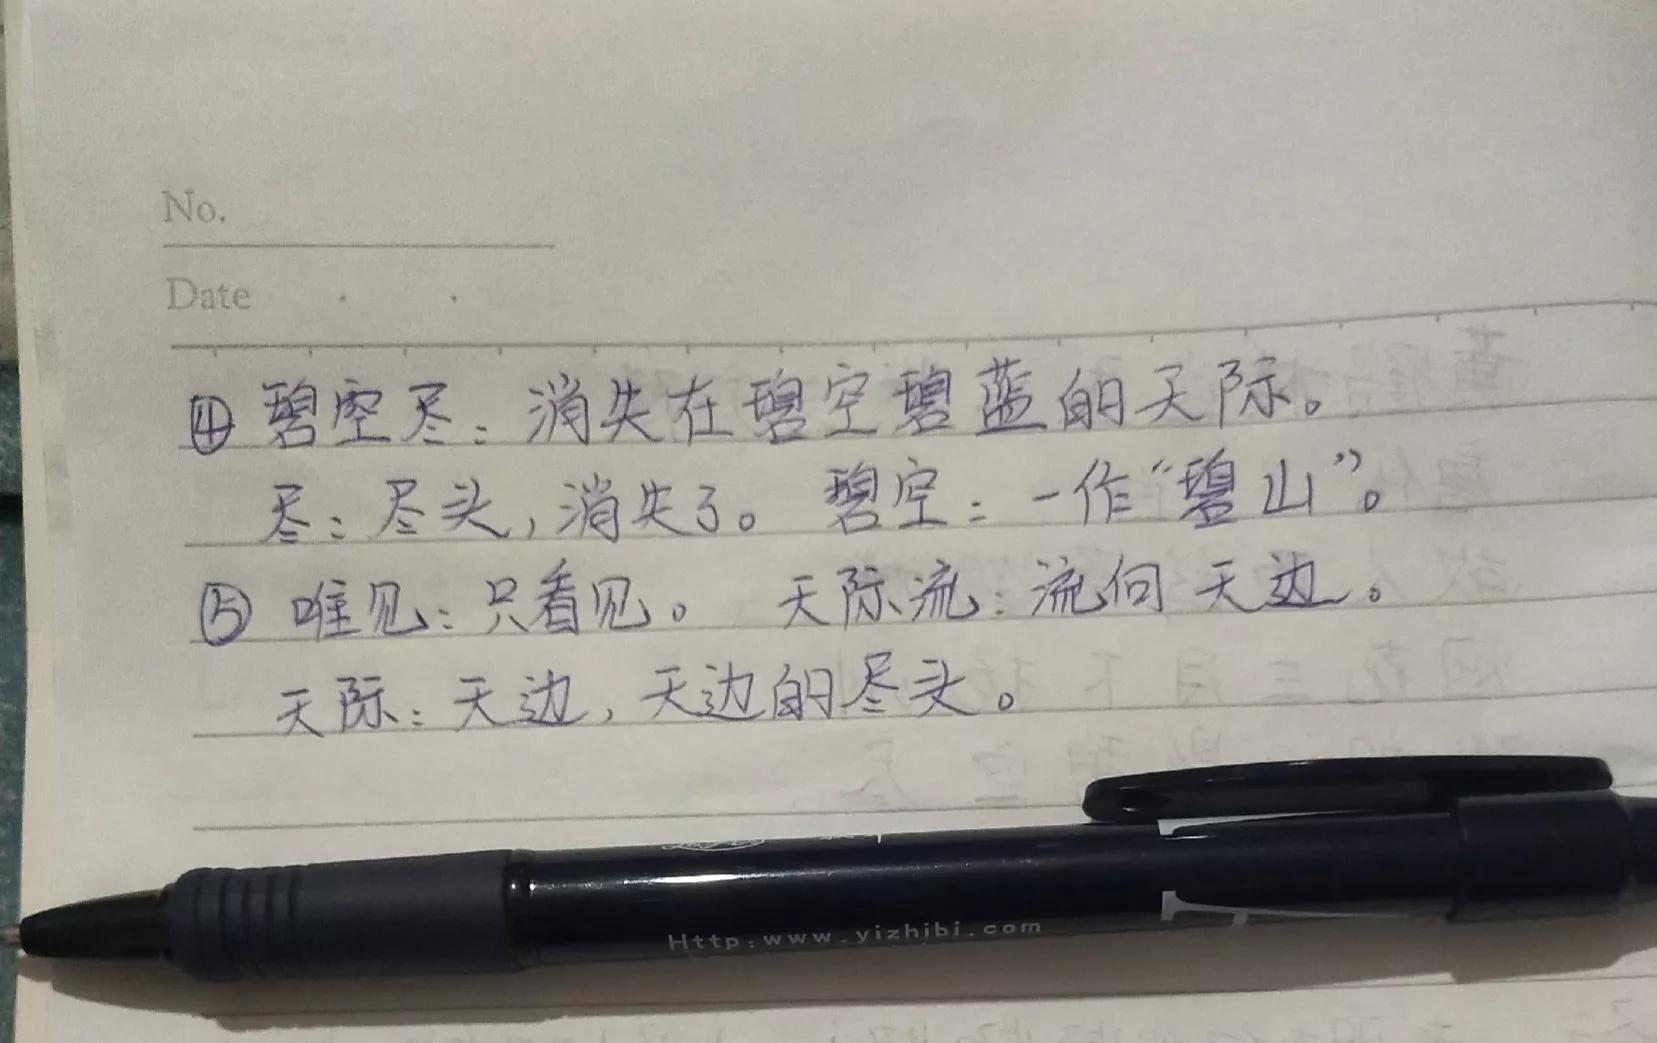 No.
Date
④ 碧空尽：消失在碧空碧蓝的天际。
尽：尽头，消失了。 碧空：一作“碧山”。
⑤ 唯见：只看见。 天际流：流向天边。
天际：天边，天边的尽头。
Http:www.yizhibi.com